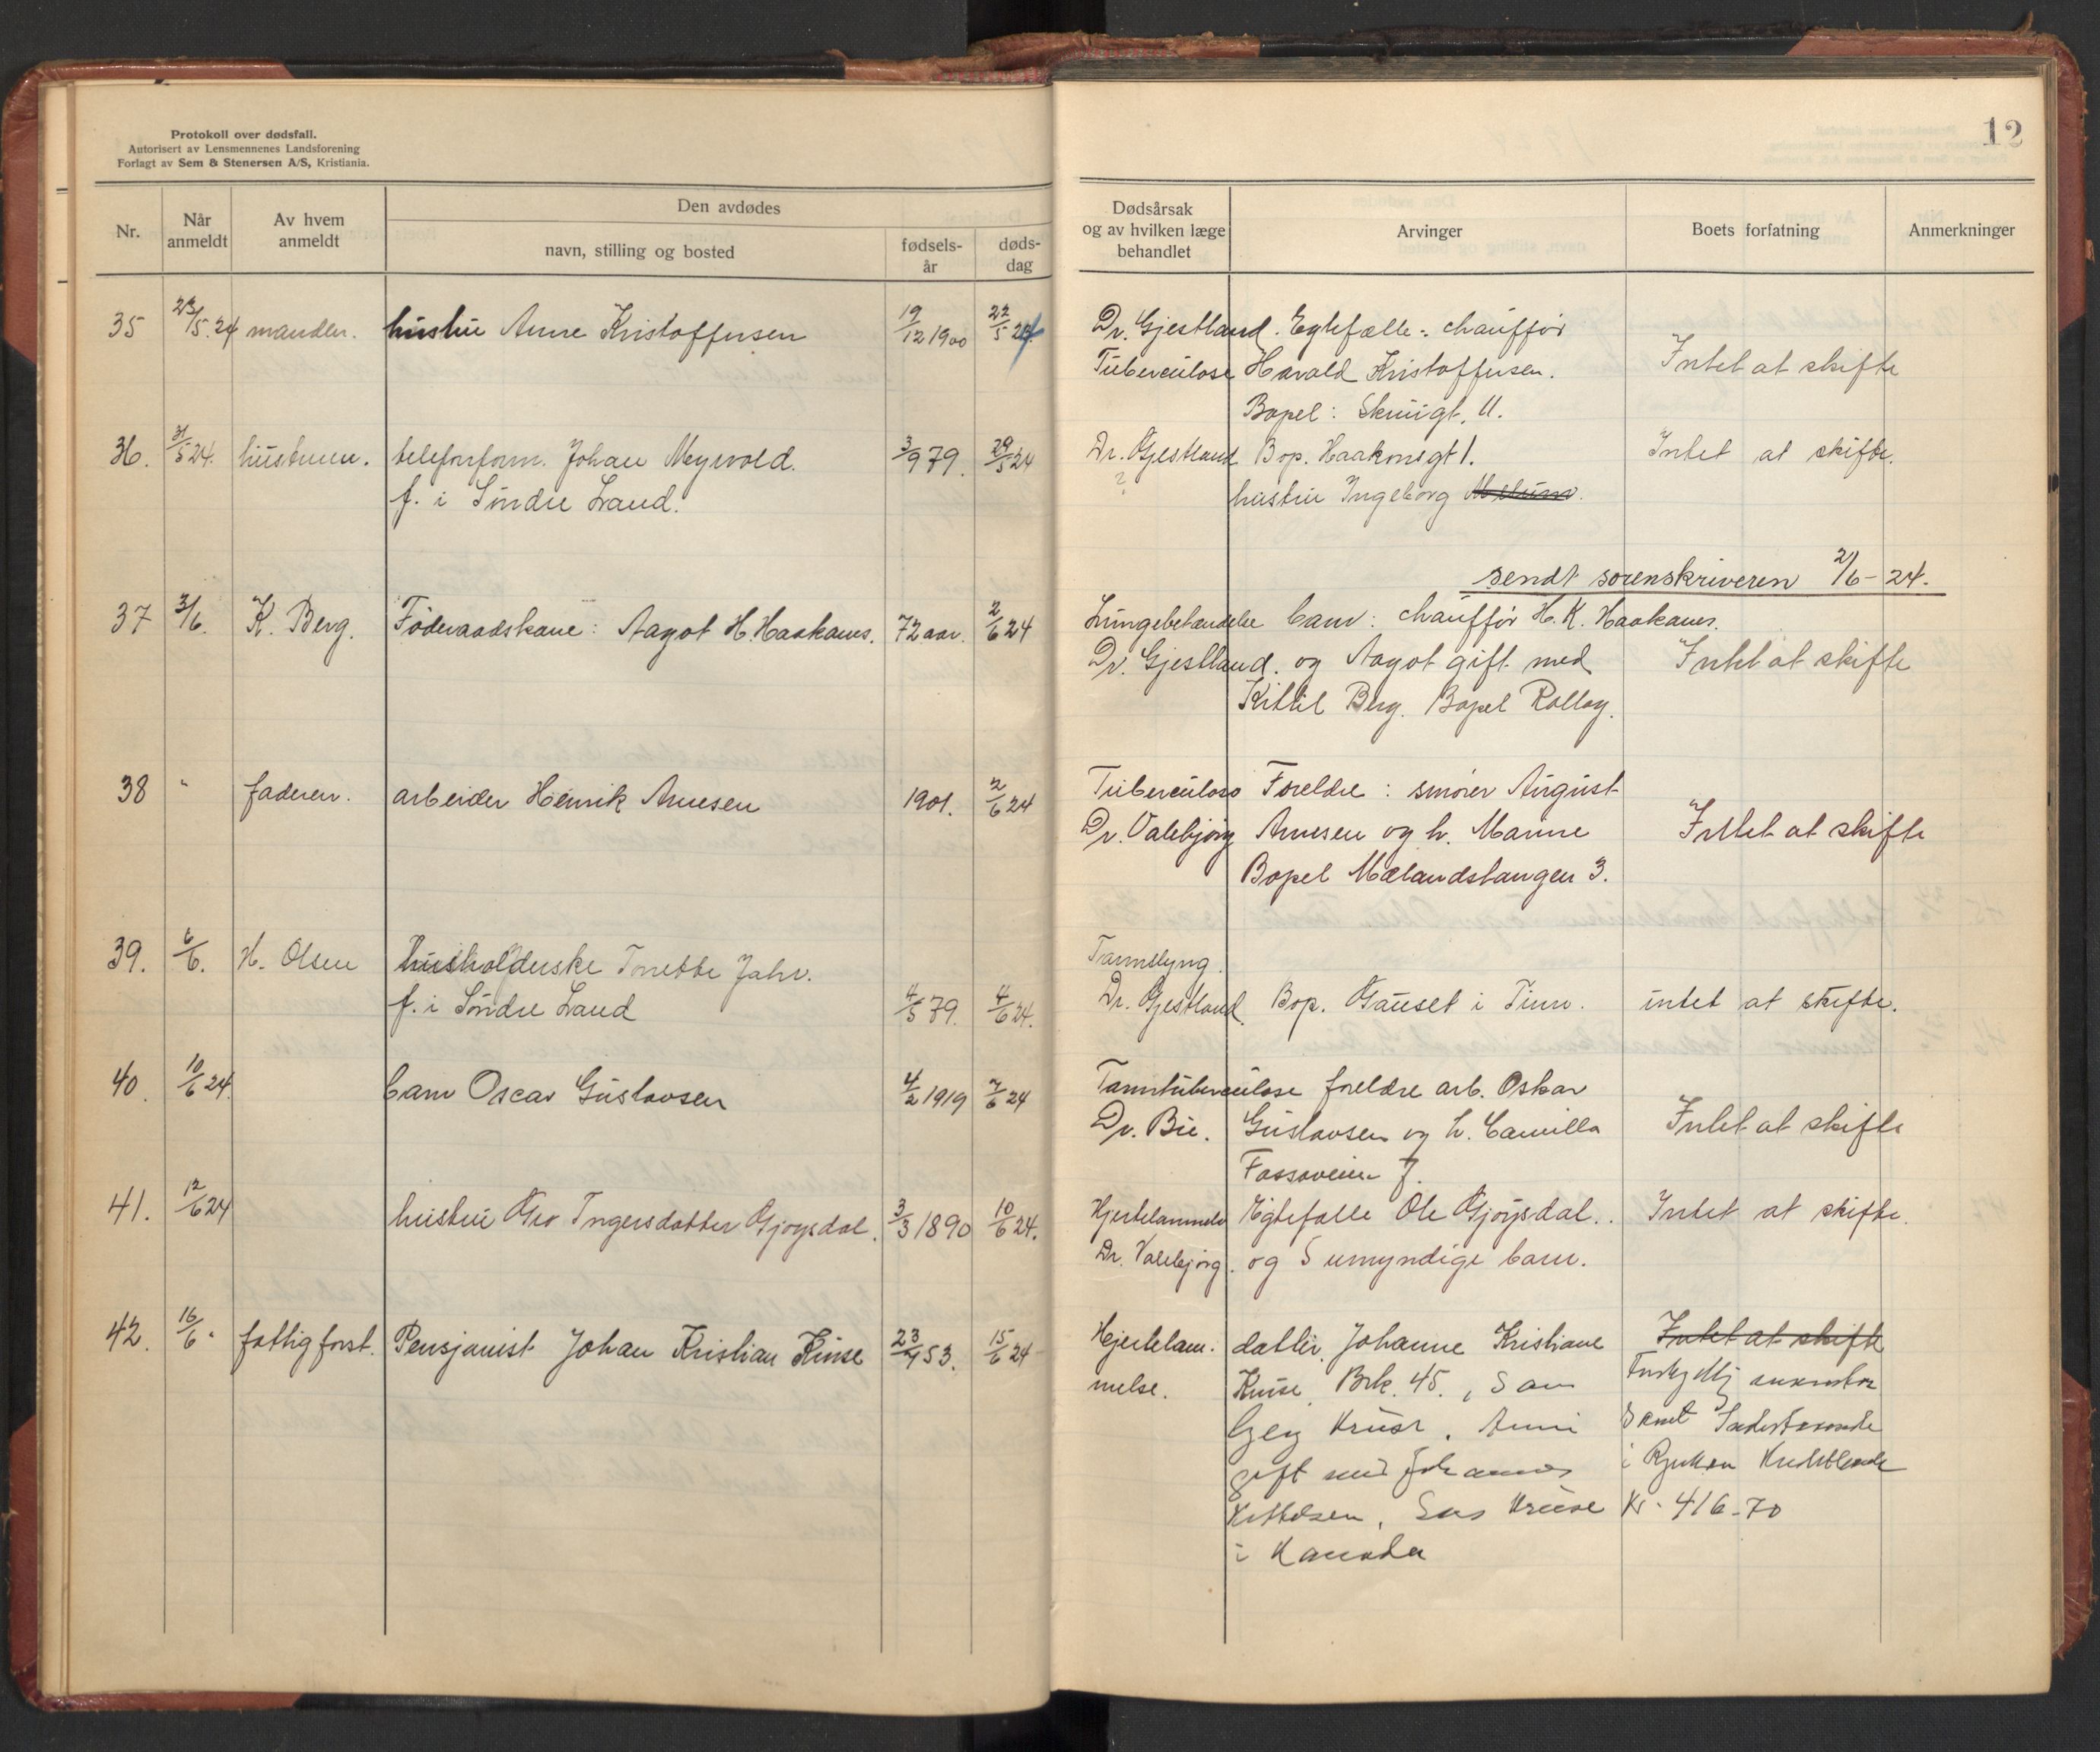 Protokoll over dødsfall.
Autorisert av Lensmennenes Landsforening
Forlagt av Sem & Stenersen A/S, Kristiania.
12
Nr.
Når anmeldt
Av hvem anmeldt
Den avdødes
navn, stilling og bosted
fødsels-år
døds-dag
Dødsårsak
og av hvilken læge
behandlet
Arvinger
Boets forfatning
Anmerkninger
35 23/5.24 manden. hustru Anne Kristoffersen 19/12 1900 22/5 24 Dr. Gjestland. Egtefælle: chauffør
Tuberculose Harald Kristoffersen. Intet at skifte
Bopel: Skriugt. 11.
36. 31/5 24. hustruen. telefonform. Johan Myrvold. 3/9 79. 29/5 24 Dr. Gjestland Bop. Haakonsgt 1. Intet at skifte.
f. i Søndre Land. ? hustru Ingeborg
sendt sorenskriveren 2/6-24.
37 3/6. K. Berg. Føderaadskone: Aagot H. Haakanes. 72 aar. 2/6 24 Lungebetændelse barn: chauffør H. K. Haakanes.
Dr. Gjestland. og Aagot gift med Intet at skifte
Kittil Berg. Bopel Rollag.
38 " faderen. arbeider Henrik Arnesen 1901. 2/6 24 Tuberculose Foreldre: smører August
Dr. Valebjørg Arnesen og h. Marine Intet at skifte
Bopel Mælandstangen 3.
39. 6/6. H. Olsen husholderske Tonette Jahr. Tarmslyng.
f. i Søndre Land 4/5 79. 4/6 24. Dr. Gjestland. Bop. Gauset i Tinn. intet at skifte.
40. 10/6 24. barn Oscar Gustavsen 4/2 1919 7/6 24 Tarmtuberculose foreldre arb. Oskar
Dr. Bie. Gustavsen og h. Camilla Intet at skifte
Fossoveien 7.
41. 12/6 24 hustru Gro Ingersdatter Gjøysdal. 3/3 1890 10/6 24. Hjertelammelse Egtefælle Ole Gjøysdal.. Intet at skifte.
Dr. Valebjørg. og 5 umyndige barn.
42. 16/6 " fattigforst. Pensjonist Johan Kristian Kruse 23/4 53. 15/6 24 Hjertelam- datter, Johanne Kristiane Intet at skifte
melse. Kruse, Brk. 45.,
Kruse,
gift med Johannes i Rjukan
Kittelsen, Kruse Kr. 416-70
i Kanada